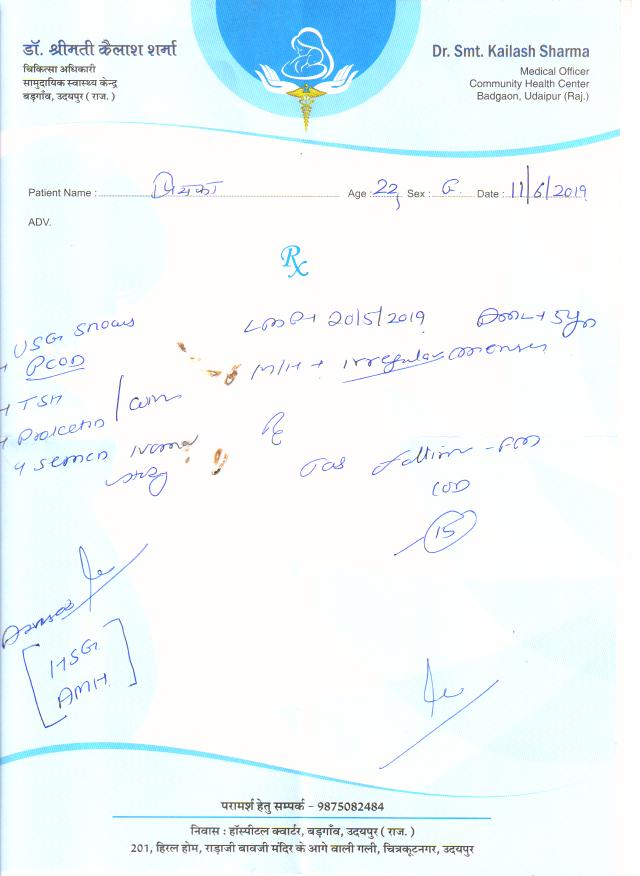 डॉ. श्रीमती कैलाश शर्मा
चिकित्सा अधिकारी
सामुदायिक स्वास्थ्य केन्द्र
बड़गाँव, उदयपुर ( राज. )
Dr. Smt. Kailash Sharma
Medical Officer
Community Health Center
Badgaon, Udaipur (Raj.)
Patient Name : प्रियंका Age : 22 Sex : Date : 11/6/2019
ADV.
Rx
USG shows
PCOD
TSH
Prolactin
semen norma
LMP → 20/5/2019
M/H → irregular menses
Rx
Tab
OD
15
HSG
AMH
परामर्श हेतु सम्पर्क – 9875082484
निवास : हॉस्पीटल क्वार्टर, बड़गाँव, उदयपुर ( राज. )
201, हिरल होम, राड़ाजी बावजी मंदिर के आगे वाली गली, चित्रकूटनगर, उदयपुर